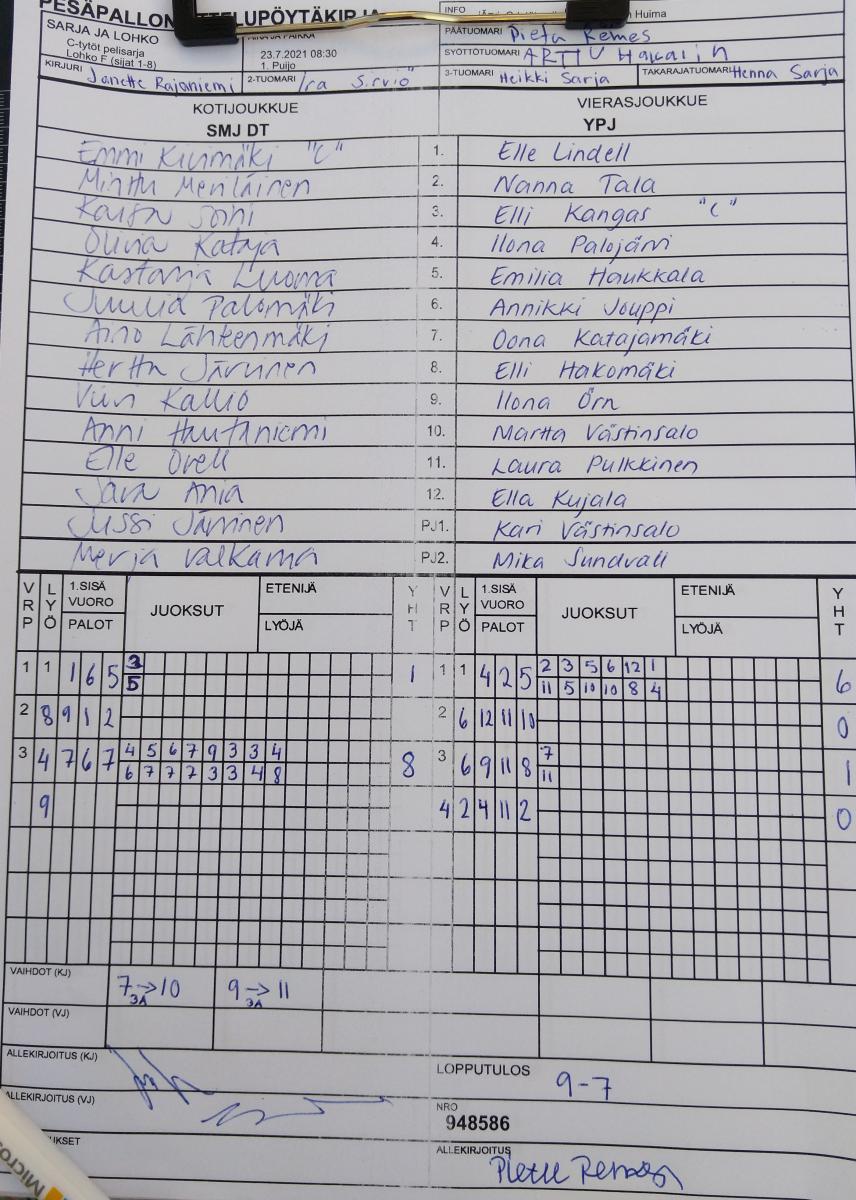 PESÄPALLON OTTELUPÖYTÄKIRJA
SARJA JA LOHKO
C-tytöt pelisarja
Lohko F (sijat 1-8)
AIKA JA PAIKKA
23.7.2021 08:30
1. Puijo
INFO
Huima
PÄÄTUOMARI
SYÖTTÖTUOMARI ARTTU
KIRJURI Janette Rajaniemi
2-TUOMARI Ira Sirviö
3-TUOMARI Heikki Sarja
TAKARAJATUOMARI Henna Sarja
KOTIJOUKKUE VIERASJOUKKUE
SMJ DT YPJ
Emmi Kivimäki "C" 1. Elle Lindell
Minttu Meriläinen 2. Nanna Tala
Kaisa Soini 3. Elli Kangas "C"
Olivia Kataja 4. Ilona Palojärvi
Luoma 5. Emilia Haukkala
Juulia Palomäki 6. Annikki Jouppi
Aino Lähteenmäki 7. Oona Katajamäki
Hertta Järvinen 8. Elli Hakomäki
Viivi Kallio 9. Ilona Örn
Anni Hautaniemi 10. Martta Västinsalo
Elle Övell 11. Laura Pulkkinen
Sara Ania 12. Ella Kujala
Jussi PJ1. Kari Västinsalo
Merja Valkama PJ2. Mika Sundvall
VRP LYÖ 1.SISÄ VUORO PALOT JUOKSUT ETENIJÄ LYÖJÄ YHT VRP LYÖ 1.SISÄ VUORO PALOT JUOKSUT ETENIJÄ LYÖJÄ YHT
1 1 1 6 5 3 1 1 1 4 2 5 2 3 5 6 12 1 6
5 11 5 10 10 8 4
2 8 9 1 2 2 6 12 11 10 0
3 4 7 6 7 4 5 6 7 9 3 3 4 8 3 6 9 11 8 7 1
6 7 7 7 3 3 4 8 11
9 4 2 4 11 2 0
VAIHDOT (KJ) 7→10 3A 9→11 3A
VAIHDOT (VJ)
ALLEKIRJOITUS (KJ)
LOPPUTULOS 9-7
ALLEKIRJOITUS (VJ)
NRO
948586
UKSET
ALLEKIRJOITUS
Micros